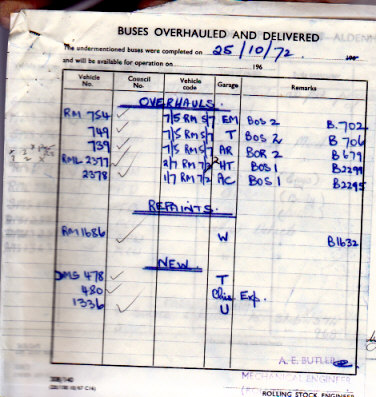 BUSES OVERHAULED AND DELIVERED
The undermentioned buses were completed on 25/10/72
and will be available for operation on 196
Vehicle No. Council No. Vehicle code Garage Remarks
OVERHAULS.
RM 754 ✓ 7/5 RM 5/7 EM BOS 2 B.702
749 ✓ 7/5 RM 5/7 T BOS 2 B 706
739 ✓ 7/5 RM 5/7 AR BOR 2 B 679
RML 2377 ✓ 2/7 RM 7/2 HT BOS 1 B2299
2378 ✓ 1/7 RM 7/2 AC BOS 1 B2295
REPAINTS.
RM 1686 ✓ W B1632
NEW
DMS 478 ✓ T
480 ✓ Chis. Exp.
1336 ✓ U
A. E. BUTLER
MECHANICAL ENGINEER
ROLLING STOCK ENGINEER